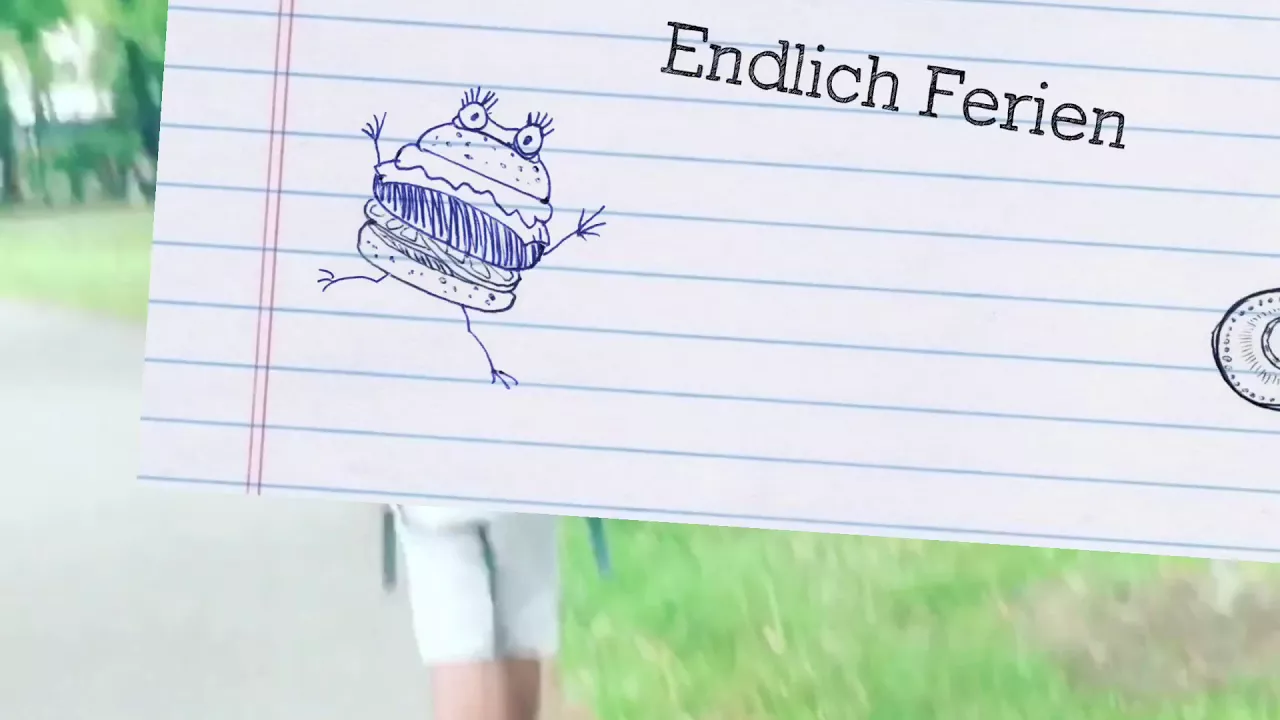 Endlich Ferien